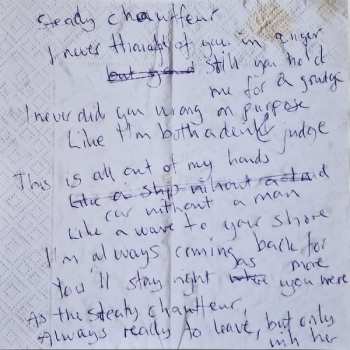 Steady chauffeur
I never thought of you in anger
but g still you hold
me for a grudge
I never did you wrong on purpose
Like I'm both a and judge
This is all out of my hands
Like a ship without a
car without a man
Like a wave to your shore
I'm always coming back for
more
You'll stay right as you were
As the steady chauffeur,
Always ready to leave, but only
with her